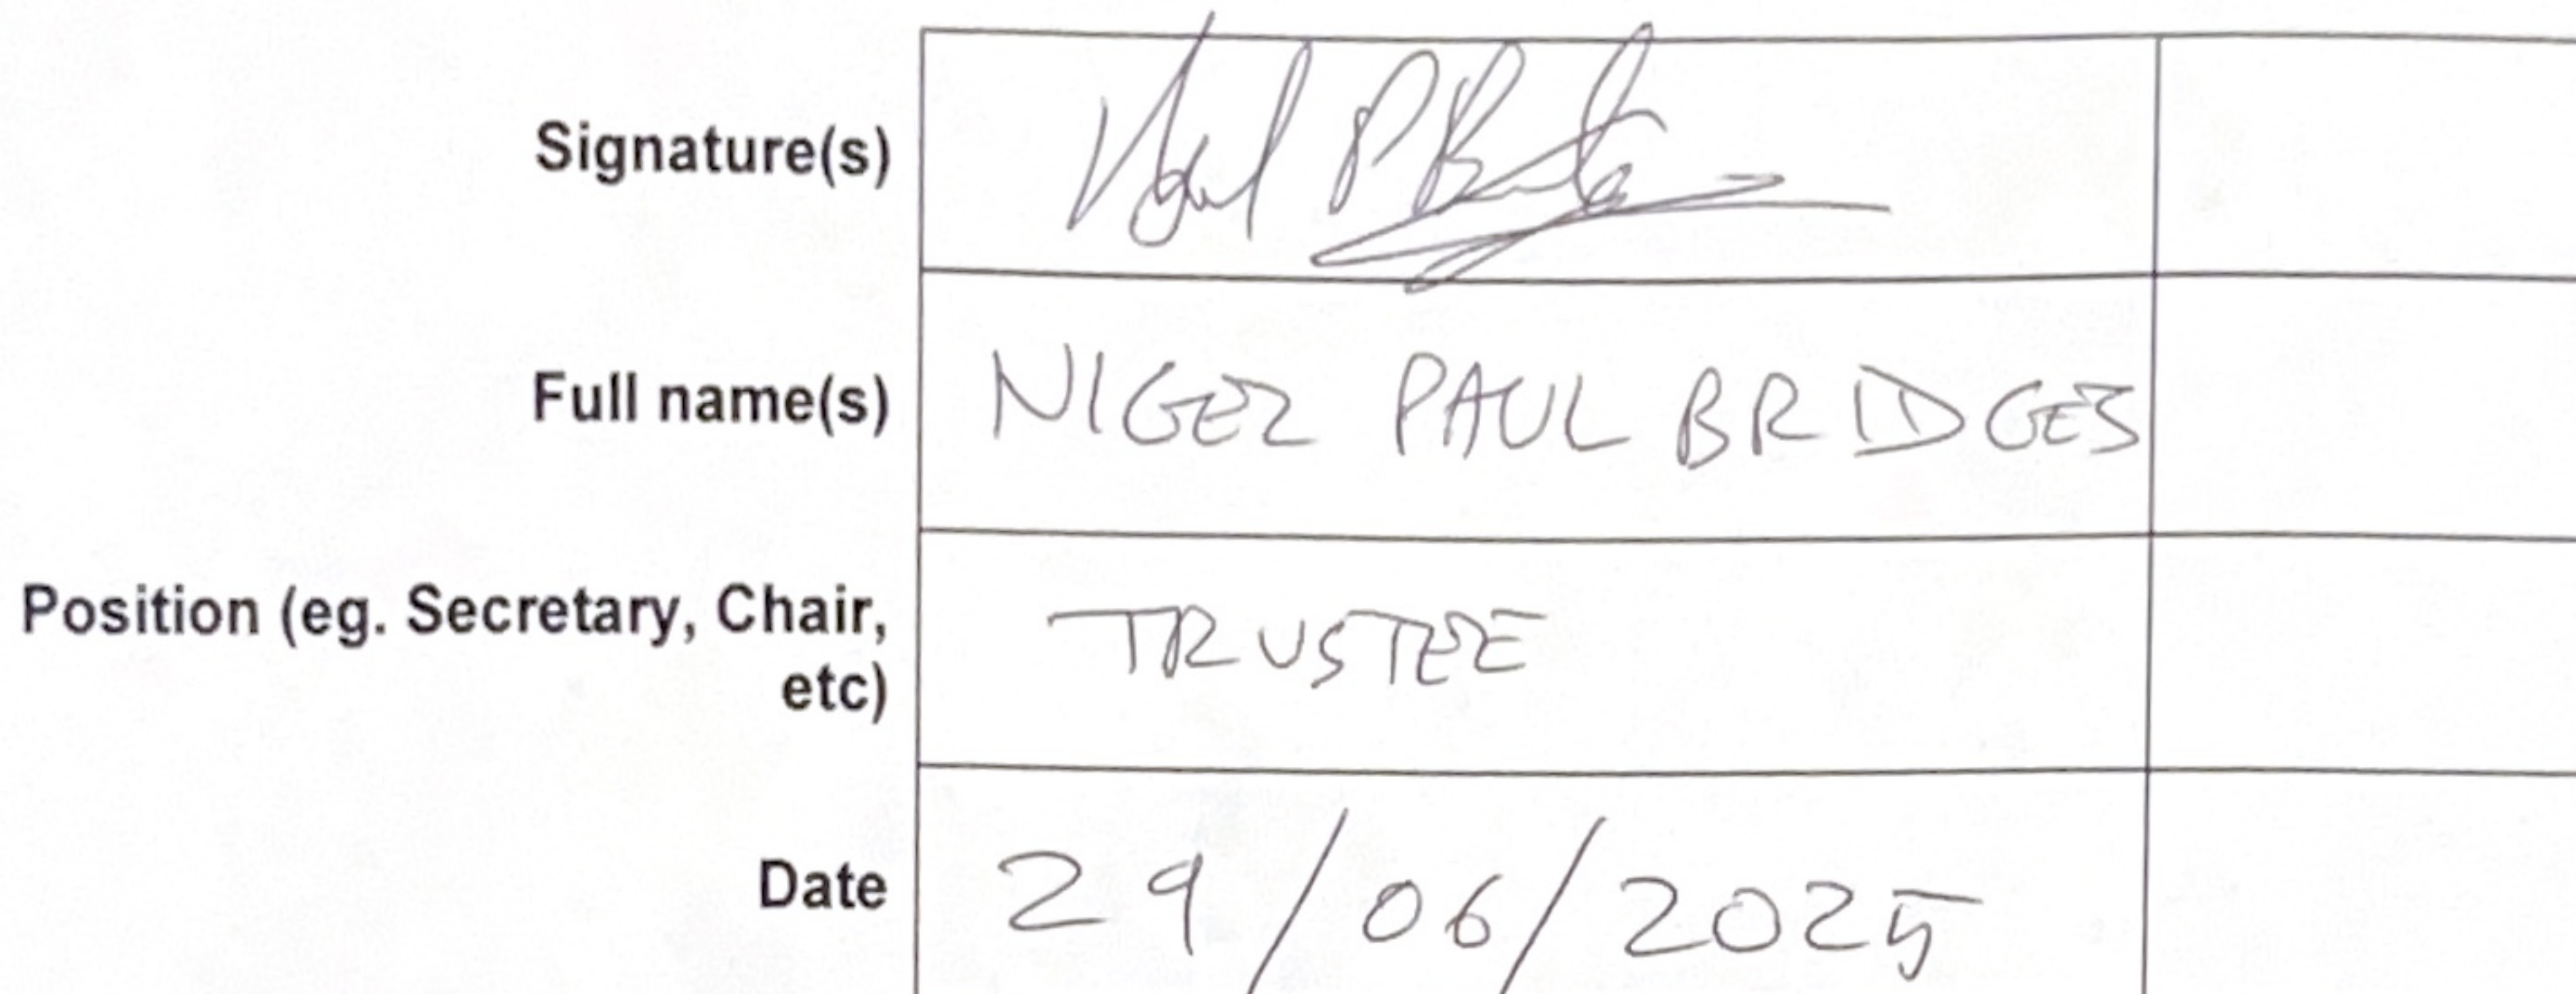 Signature(s)
Full name(s) NIGEL PAUL BRIDGES
Position (eg. Secretary, Chair,
etc) TRUSTEE
Date 29/06/2025